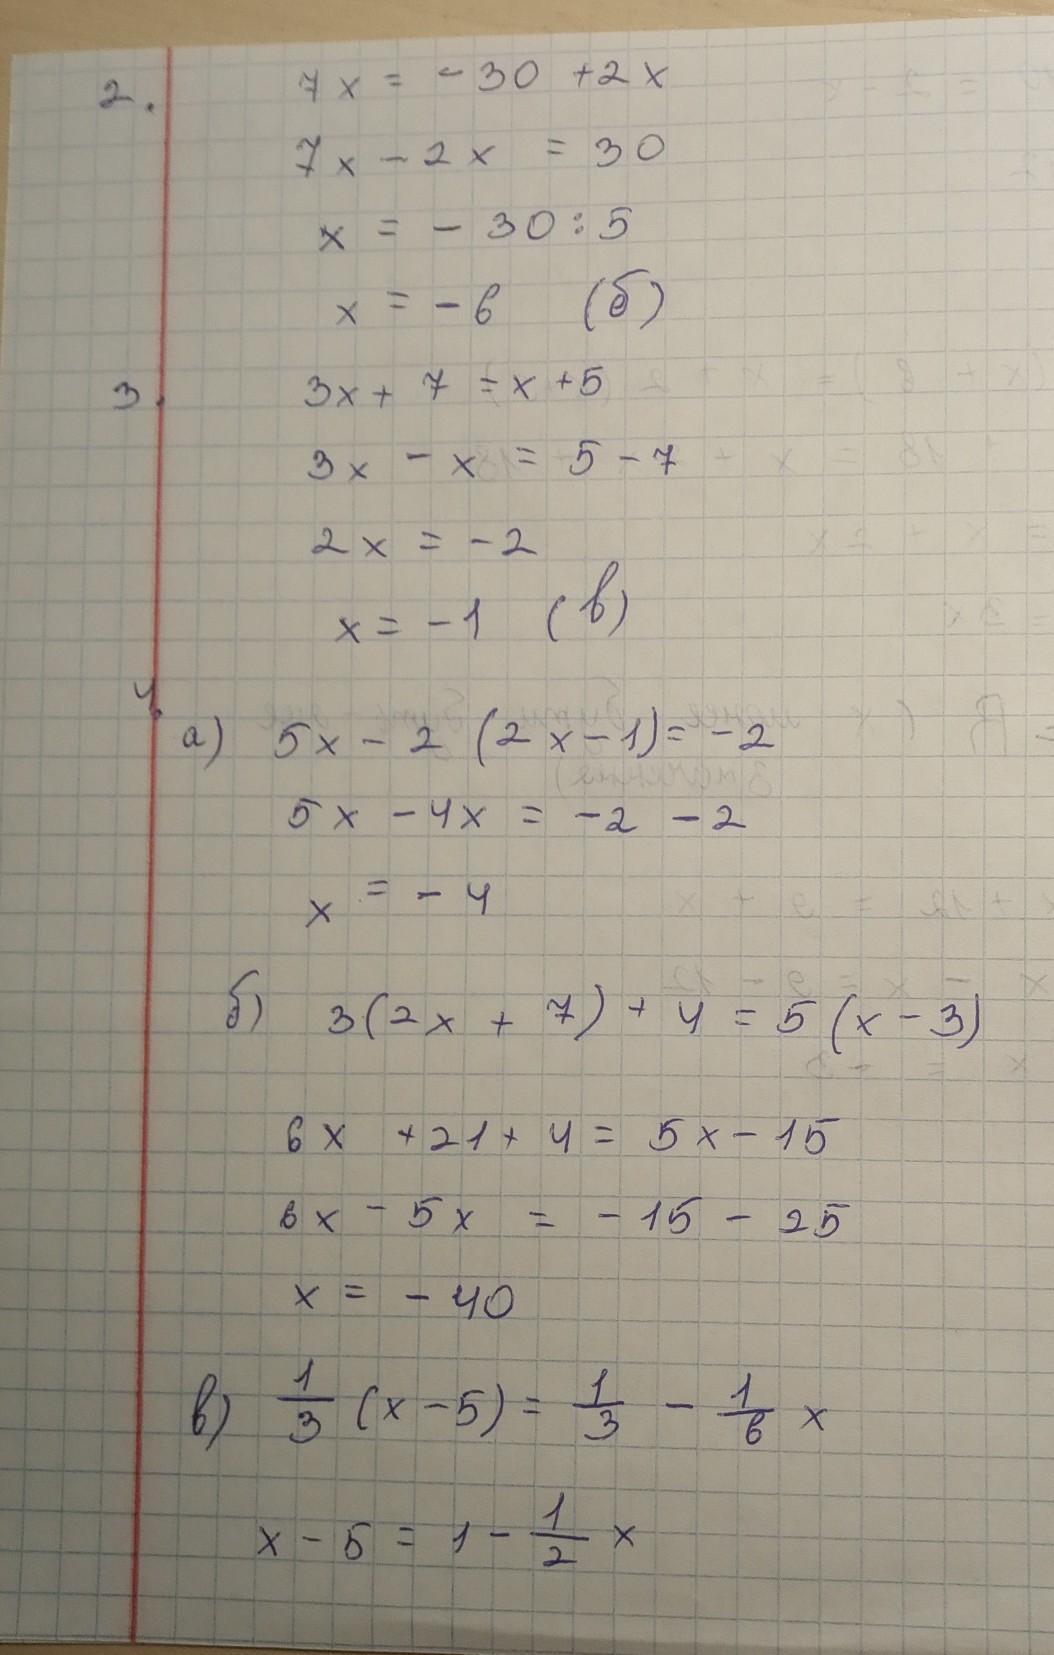 2. 7x = -30 + 2x
7x - 2x = 30
x = -30 : 5
x = -6 (б)
3. 3x + 7 = x + 5
3x - x = 5 - 7
2x = -2
x = -1 (в)
4.
а) 5x - 2 (2x - 1) = -2
5x - 4x = -2 - 2
x = -4
б) 3(2x + 7) + 4 = 5(x - 3)
6x + 21 + 4 = 5x - 15
6x - 5x = -15 - 25
x = -40
в) 1/3 (x - 5) = 1/3 - 1/6 x
x - 5 = 1 - 1/2 x